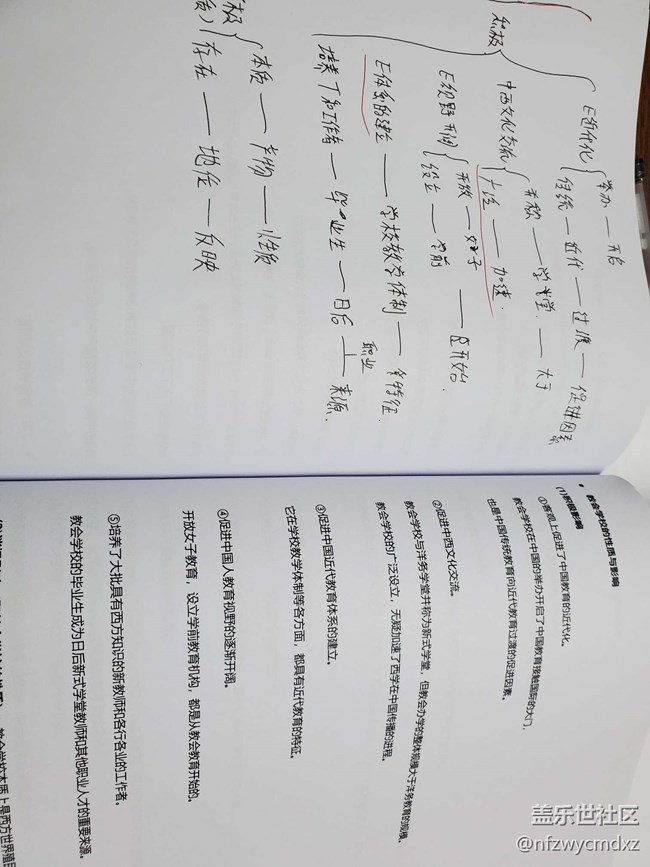 教会学校的性质与影响
(1)积极影响
①客观上促进了中国教育的近代化。
教会学校在中国的举办开启了中国教育接触国际的大门，
也是中国传统教育向近代教育过渡的促进因素。
②促进中西文化交流。
教会学校与洋务学堂并称为新式学堂，但教会办学的整体规模大于洋务教育的规模。
教会学校的广泛设立，无疑加速了西学在中国传播的进程。
③促进中国近代教育体系的建立。
它在学校教学体制等各方面，都具有近代教育的特征。
④促进中国人教育视野的逐渐开阔。
开放女子教育，设立学前教育机构，都是从教会教育开始的。
⑤培养了大批具有西方知识的新教师和各行各业的工作者。
教会学校的毕业生成为日后新式学堂教师和其他职业人才的重要来源。
教会学校本质上是西方世界殖民
积极
E近代化
举办 — 开启
传统 — 近代 — 过渡 — 促进因素
中西文化交流
并称 — 学堂 — 大于
广泛 — 加速
E视野开阔
开放 — 女子
设立 — 学前
E开始
E体系的建立 — 学校教学体制 — 各特征
培养了和工作者 — 毕业生 — 日后 — 来源
职业
极
本质 — 产物 — 性质
存在 — 地位 — 反映
盖乐世社区
@nfzwycmdxz